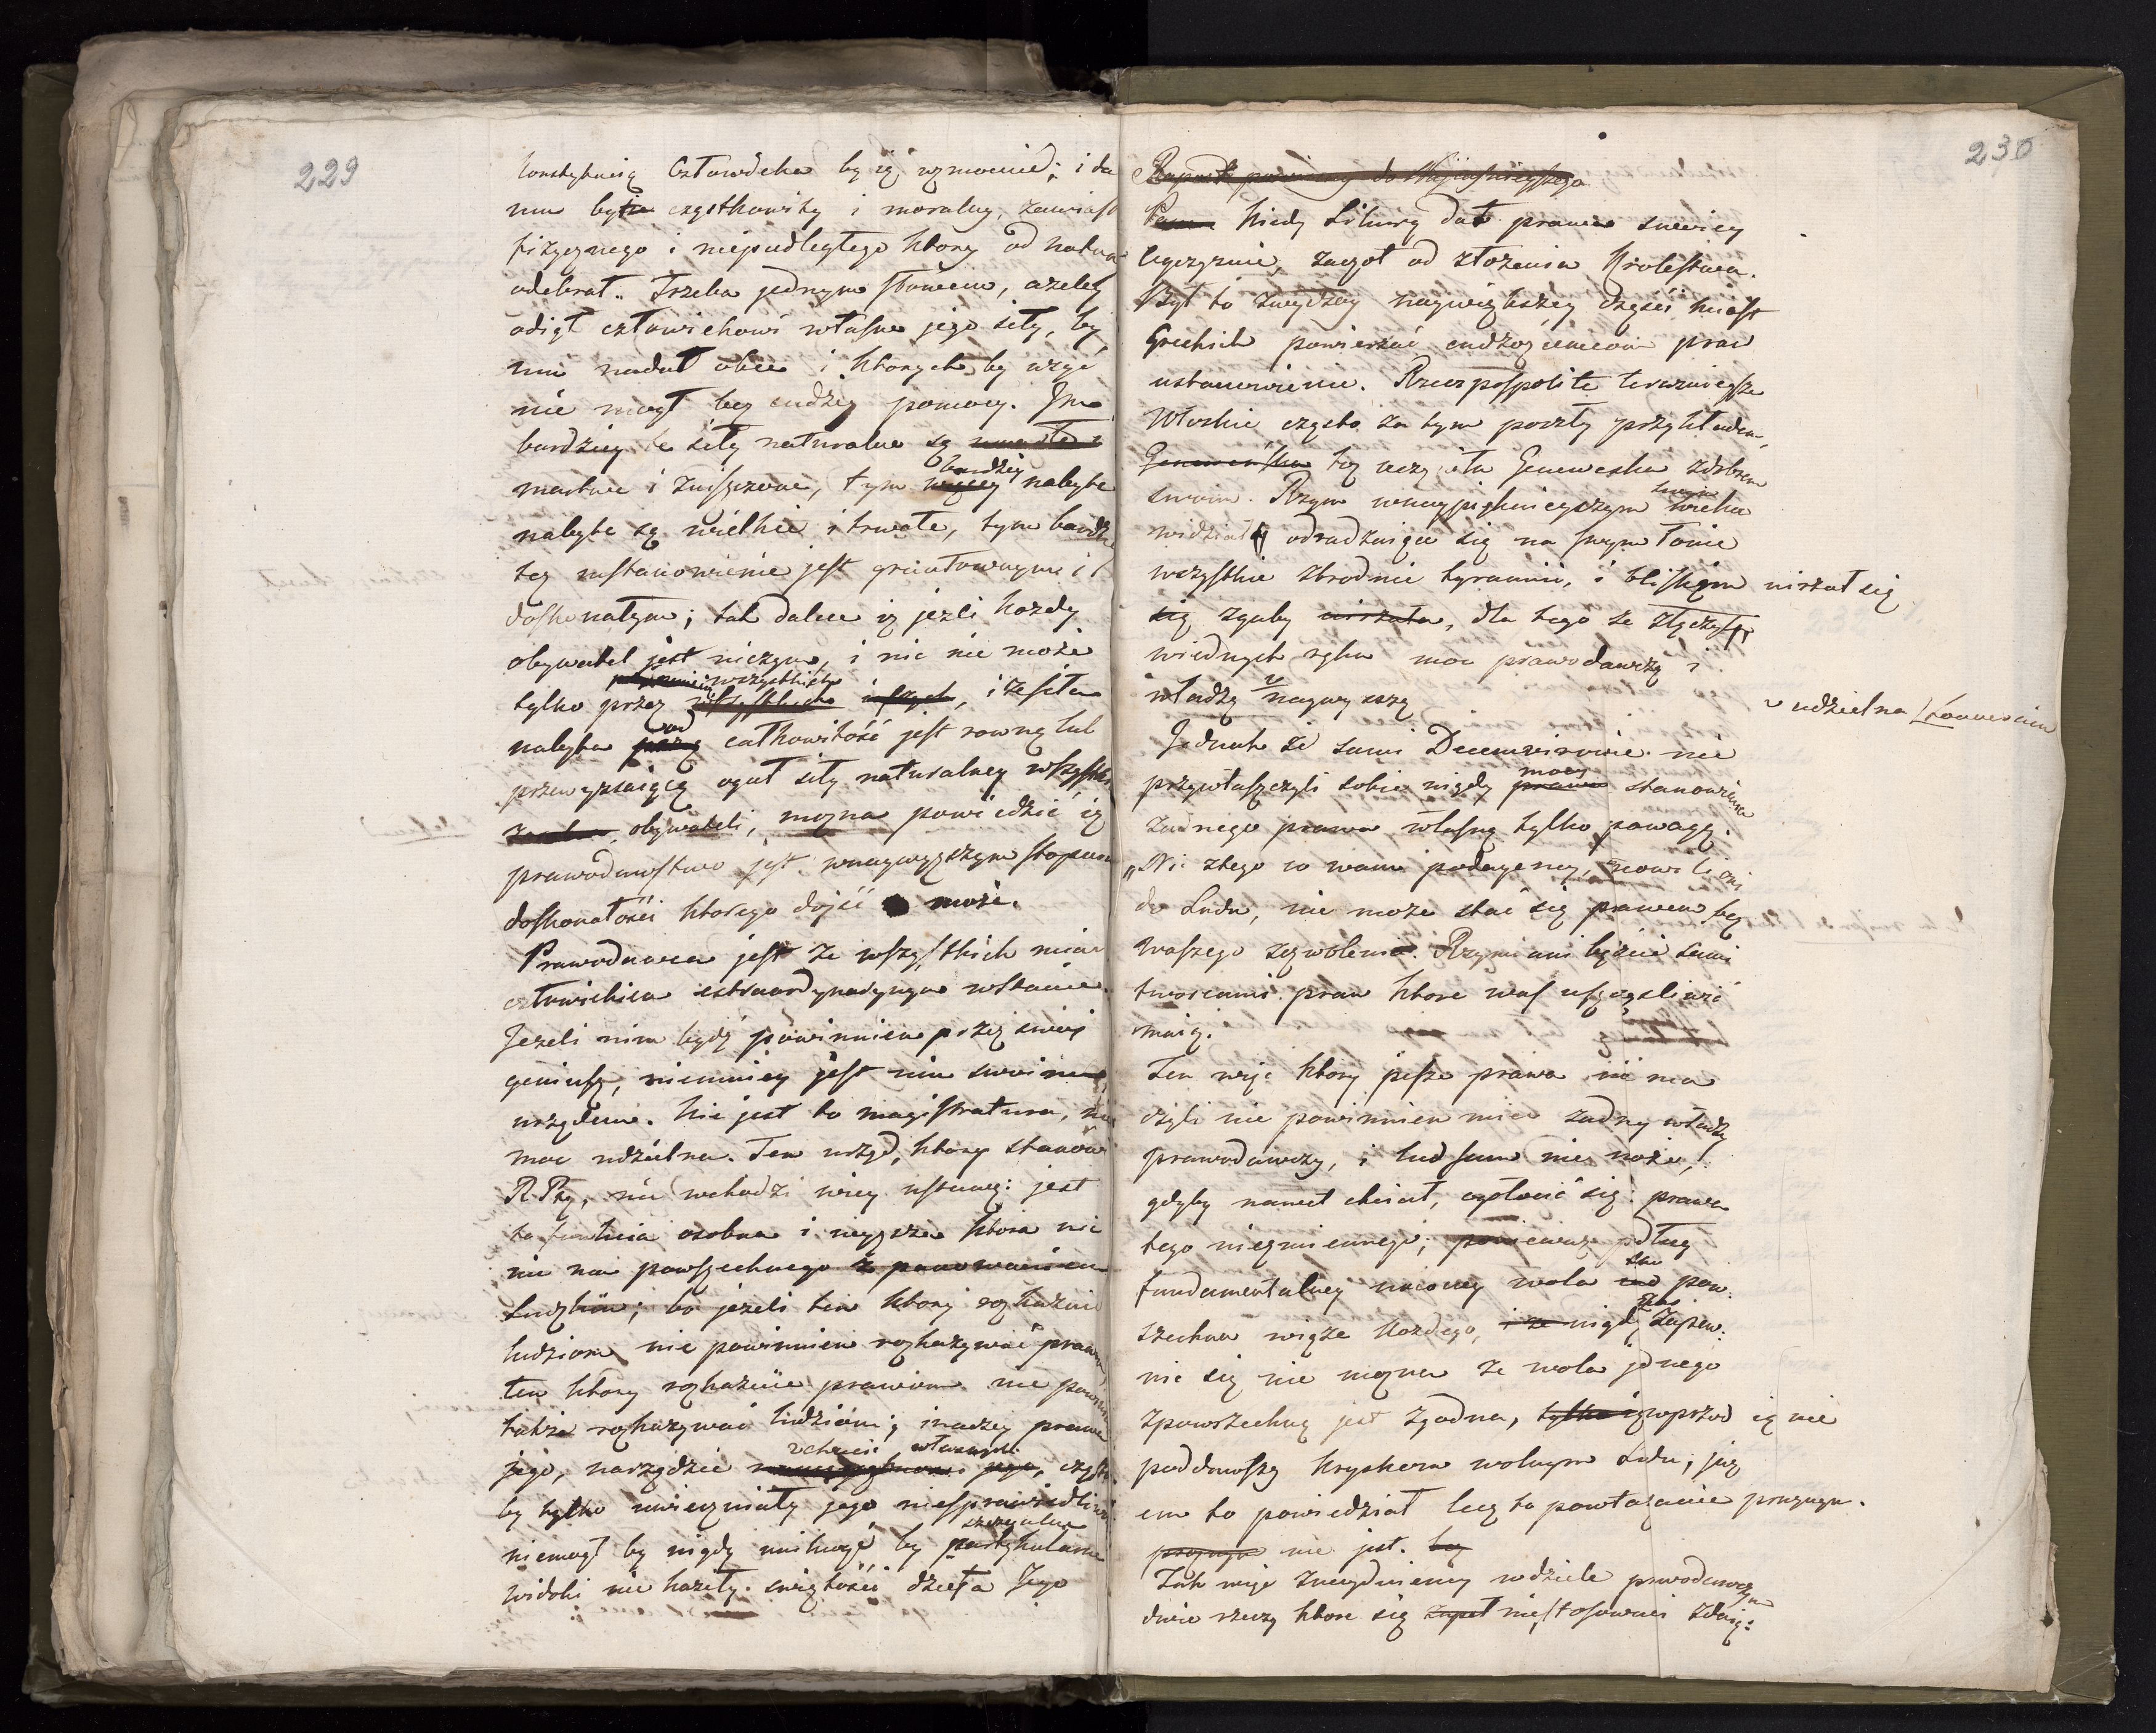 229
konstytucią Człowieka by ią wzmocnić; i da
mu bytu cząstkowity i moralny, zamiast
fizycznego i niepodległego ktory od natury
odebrał. Trzeba jednym słowem, azeby
odiął człowiekowi własne jego siły, by
mu nadał obce i ktorych by uzyć
nie mogł bez cudzey pomocy. Im
bardziey te siły naturalne są
martwe i zniszczone, tym bardziey więcey nabyte
nabyte są wielkie i trwałe, tym bardziey
tez ustanowienie jest gruntownym i
doskonałym; tak dalece iz jezli kozdy
obywatel jest niczym, i nic nie może
tylko przez wszystkich innych, i ze siła
nabyta od przez całkowitość jest rowną lub
przewyzszaiącą ogoł siły naturalney wszystkich
obywateli, mozna powiedzić iz
prawodawstwo jest wnaywyzszym stopniu
doskonałości ktorego dojść może.
Prawodawca jest ze wszystkich miar
człowiekiem extraordynaryjnym wstanie.
Jezeli nim bydź powinnien przez swoy
geniusz, niemniey jest nim swoim
urzędem. Nie jest to magistratura, nie
moc udzielna. Ten urząd, ktory stanowi
R Ptę, nie wchodzi wiey ustawę: jest
to funkcia osobna i wyzsza ktora nic
nie ma powszechnego z panowaniem
Ludzkim; bo jezeli ten ktory rozkazuie
ludziom nie powinnien rozkazywać prawom,
ten ktory rozkazuie prawom nie powinien
takze rozkazywać ludziom; inaczey prawa
jego, narzędzie zchęci własnych jego, często
by tylko uwieczniały jego niesprawiedliwości
niemogł by nigdy uniknąć by szczegulne partykularne
widoki nie kaziły swiętości dzieła Jego
230
Raport podaiemy do Nayiasnieyszego
Pana Kiedy Likurg dał prawa swoiey
oyczyznie, zaczoł od złożenia Krolestwa.
Był to zwyczay naywiększey części miast
Greckich powierzać cudzoziemcom praw
ustanowienie. Rzeczpospolite terazniejsze
Włoskie często za tym poszły przykładem,
Genewska toz uczyniła Genewska zdobrem
swoim. Rzym wnaypięknieyszym swym wieku
widział odradzaiące się na swym łonie
wszystkie zbrodnie tyrannii, i bliskim nirzał się
się zguby nirzała, dla tego ze złączył
wiednych ręku moc prawodawczą i
władzę v naywyzszą
v udzielna
Jednak że sami Decemvirowie nie
przywłaszczyli sobie nigdy mocy prawa stanowienia
zadnego prawa własną tylko powagą.
„Nic ztego co wam podaiemy, mowili oni
do Ludu, nie może stać się prawem bez
Waszego zezwolenia. Rzymiani bądzcie sami
tworcami praw ktore was uszczęsliwić
maią.
Ten więc ktory pisze prawa nie ma
czyli nie powinnien mieć zadney władzy
prawodawczy, i lud sam nie może,
gdyby nawet chciał, ogołocić się prawa
tego niezmiennego; poniewasz podług
fundamentalney umowy wola pow-
szechna wiąze kozdego, i ze nigdy zapew-
nić się nie mozna ze wola jednego
zpowszechną jest zgodna, tylko wprzod ią nie
poddawszy kryskom wolnym Ludu; juz
em to powiedział lecz to powtarzanie
nie jest.
Tak więc znaydziemy wdziele prawodawczym
dwie rzeczy ktore się niestosowaci zdaią: